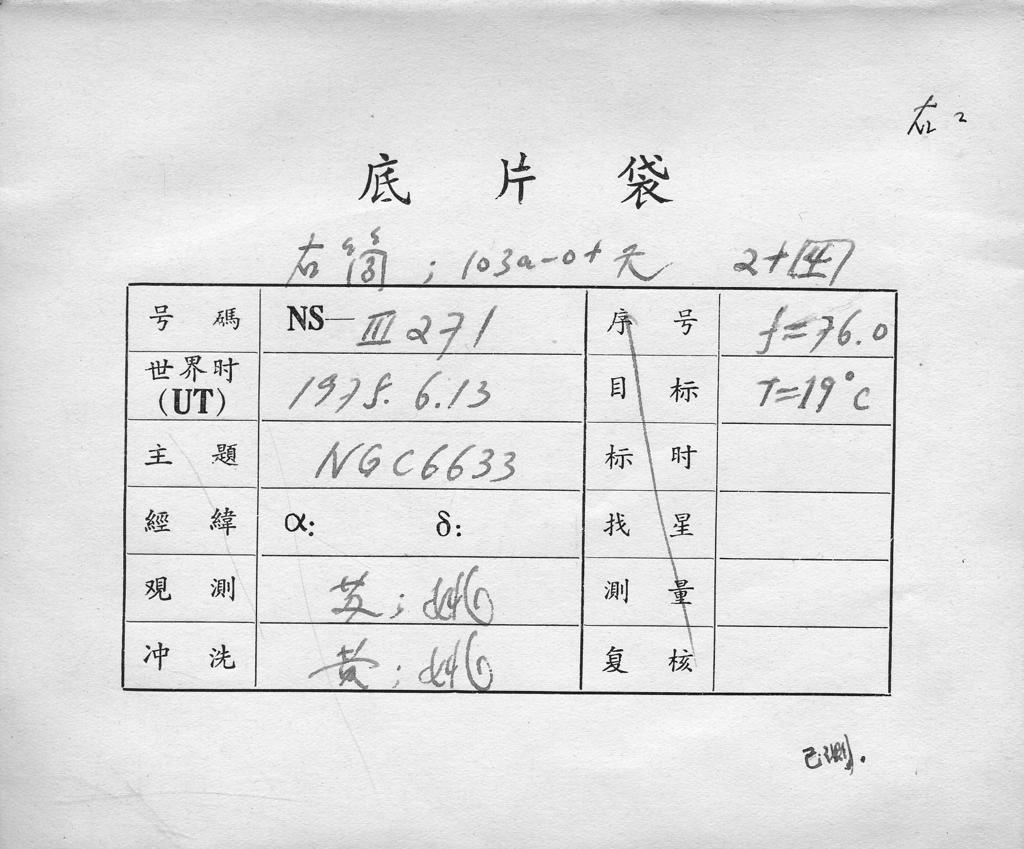 右 2
底 片 袋
右筒 ; 103a-0+天 2+四
号 碼 NS— III 271 序 号 f=76.0
世界时 (UT) 1975. 6.13 目 标 T=19°C
主 題 NGC6633 标 时
經 緯 α: δ: 找 星
观 測 ; 測 量
冲 洗 黄 ; 复 核
已测.